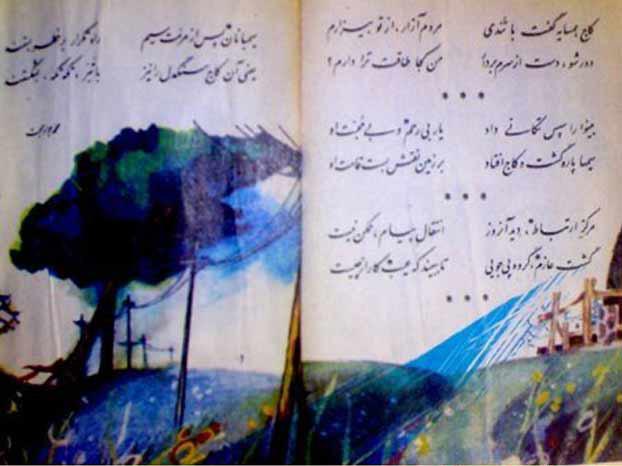 کاج همسایه گفت با تندی مردم آزار، از تو بیزارم
دور شو، دست از سرم بردار من کجا طاقت ترا دارم؟
* * *
بینوا را سپس تکانی داد یار بی رحم و بی محبت او
سیمها پاره گشت و کاج افتاد بر زمین نقش بست قامت او
* * *
مرکز ارتباط، دید آن روز انتقال پیام، ممکن نیست
گشت عازم، گروه پی جویی تا ببیند که عیب کار از چیست
* * *
سیمبانان پس از مرمت سیم راه تکرار بر خطر بستند
یعنی آن کاج سنگدل را نیز با تبر، تکه تکه، بشکستند
محمد جواد محبت